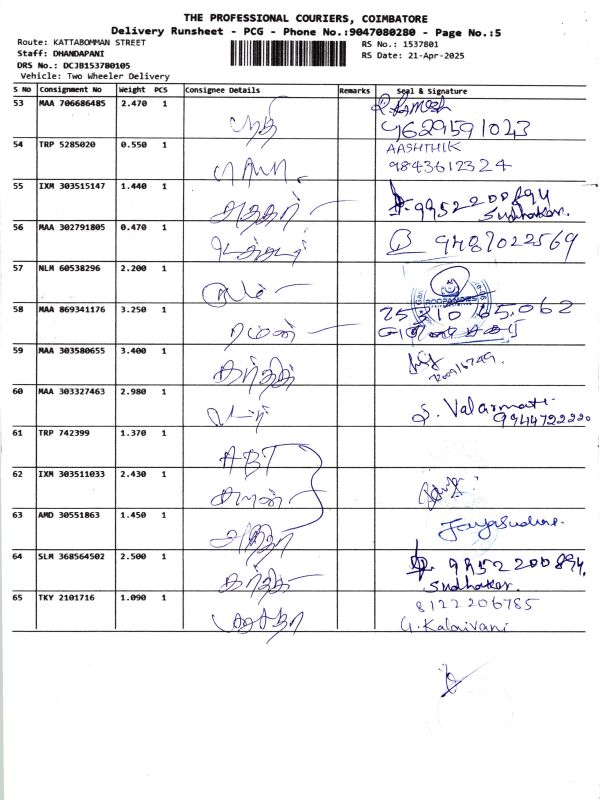 THE PROFESSIONAL COURIERS, COIMBATORE
Delivery Runsheet - PCG - Phone No.:9047080280 - Page No.:5
Route: KATTABOMMAN STREET
RS No.: 1537801
Staff: DHANDAPANI
RS Date: 21-Apr-2025
DRS No.: DCJB153780105
Vehicle: Two Wheeler Delivery
S No Consignment No Weight PCS Consignee Details Remarks Seal & Signature
53 MAA 706686485 2.470 1 R. Ramesh
9629591023
54 TRP 5285020 0.550 1 AASHTHIK
9843612324
55 IXM 303515147 1.440 1 9952200894
Sudhakar.
56 MAA 302791805 0.470 1 9487022569
57 NLM 60538296 2.200 1
58 MAA 869341176 3.250 1 ரமணன்
59 MAA 303580655 3.400 1 கார்த்திக்
60 MAA 303327463 2.980 1 S. Valarmati
9944722220
61 TRP 742399 1.370 1 ABT
62 IXM 303511033 2.430 1
63 AMD 30551863 1.450 1 Jayasudha.
64 SLM 368564502 2.500 1 9952200894.
Sudhakar.
65 TKY 2101716 1.090 1 8122206785
G. Kalaivani